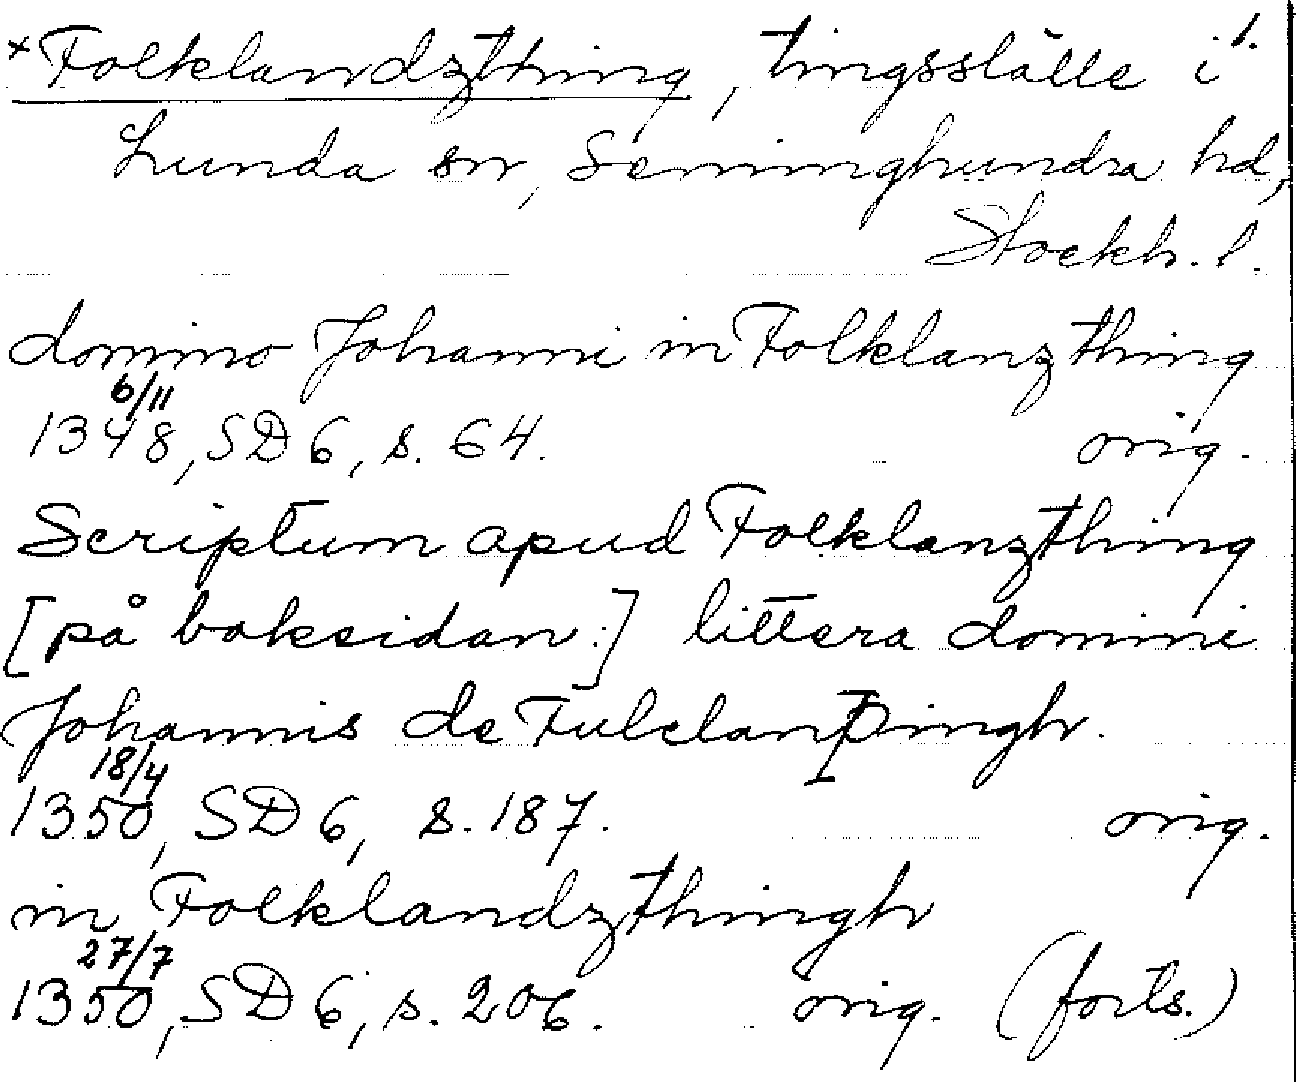 ×Folklandzthing, tingsställe i 1.
Lunda sn, Seminghundra hd,
Stockh. l.
domino Johanni in Folklanzthing
6/11
1348, SD 6, s. 64. orig.
Scriptum apud Folklanzthing
[på baksidan:] littera domini
Johannis de Fulclanþingh.
18/4
1350, SD 6, s. 187. orig.
in Folklandzthingh
27/7
1350, SD 6, s. 206. orig. (forts.)